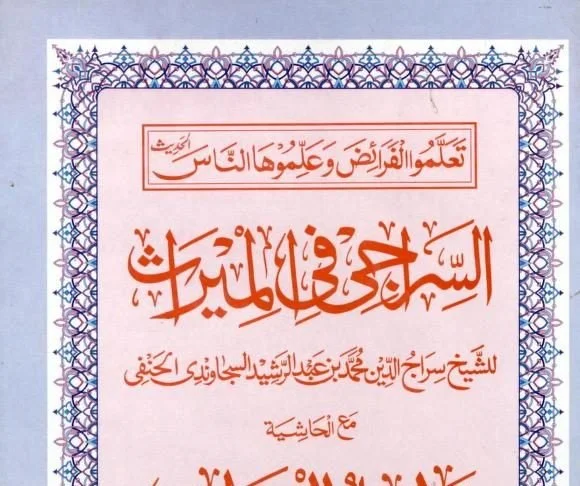 تَعَلَّمُوا الْفَرَائِضَ وَعَلِّمُوْهَا النَّاسَ الحَدِيث
السِّرَاجِي فِي الْمِيْرَاثِ
للشَّيخ سِرَاجُ الدِّين مُحَمَّد بن عَبد الرَّشِيد السجَاوندِي الحَنفِي
مَعَ الْحَاشِيَة